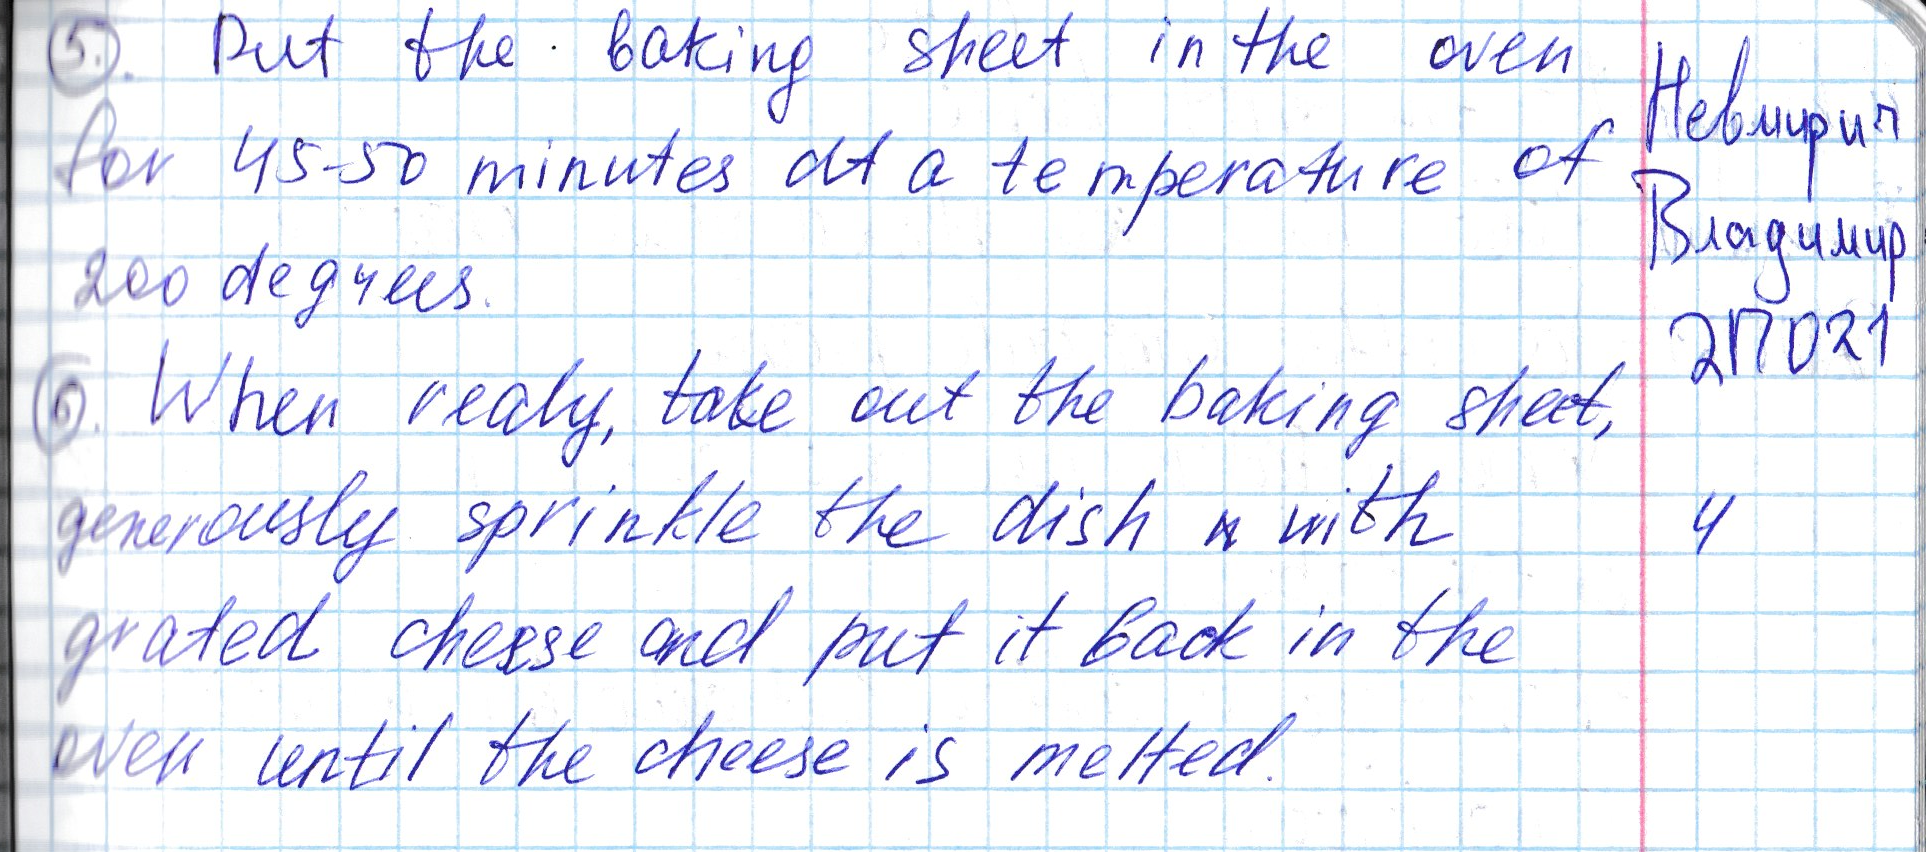 5. Put the baking sheet in the oven
for 45-50 minutes at a temperature of
200 degrees.
6. When ready, take out the baking sheet,
generously sprinkle the dish with
grated cheese and put it back in the
oven until the cheese is melted.
Невмирич
Владимир
2ПО21
4